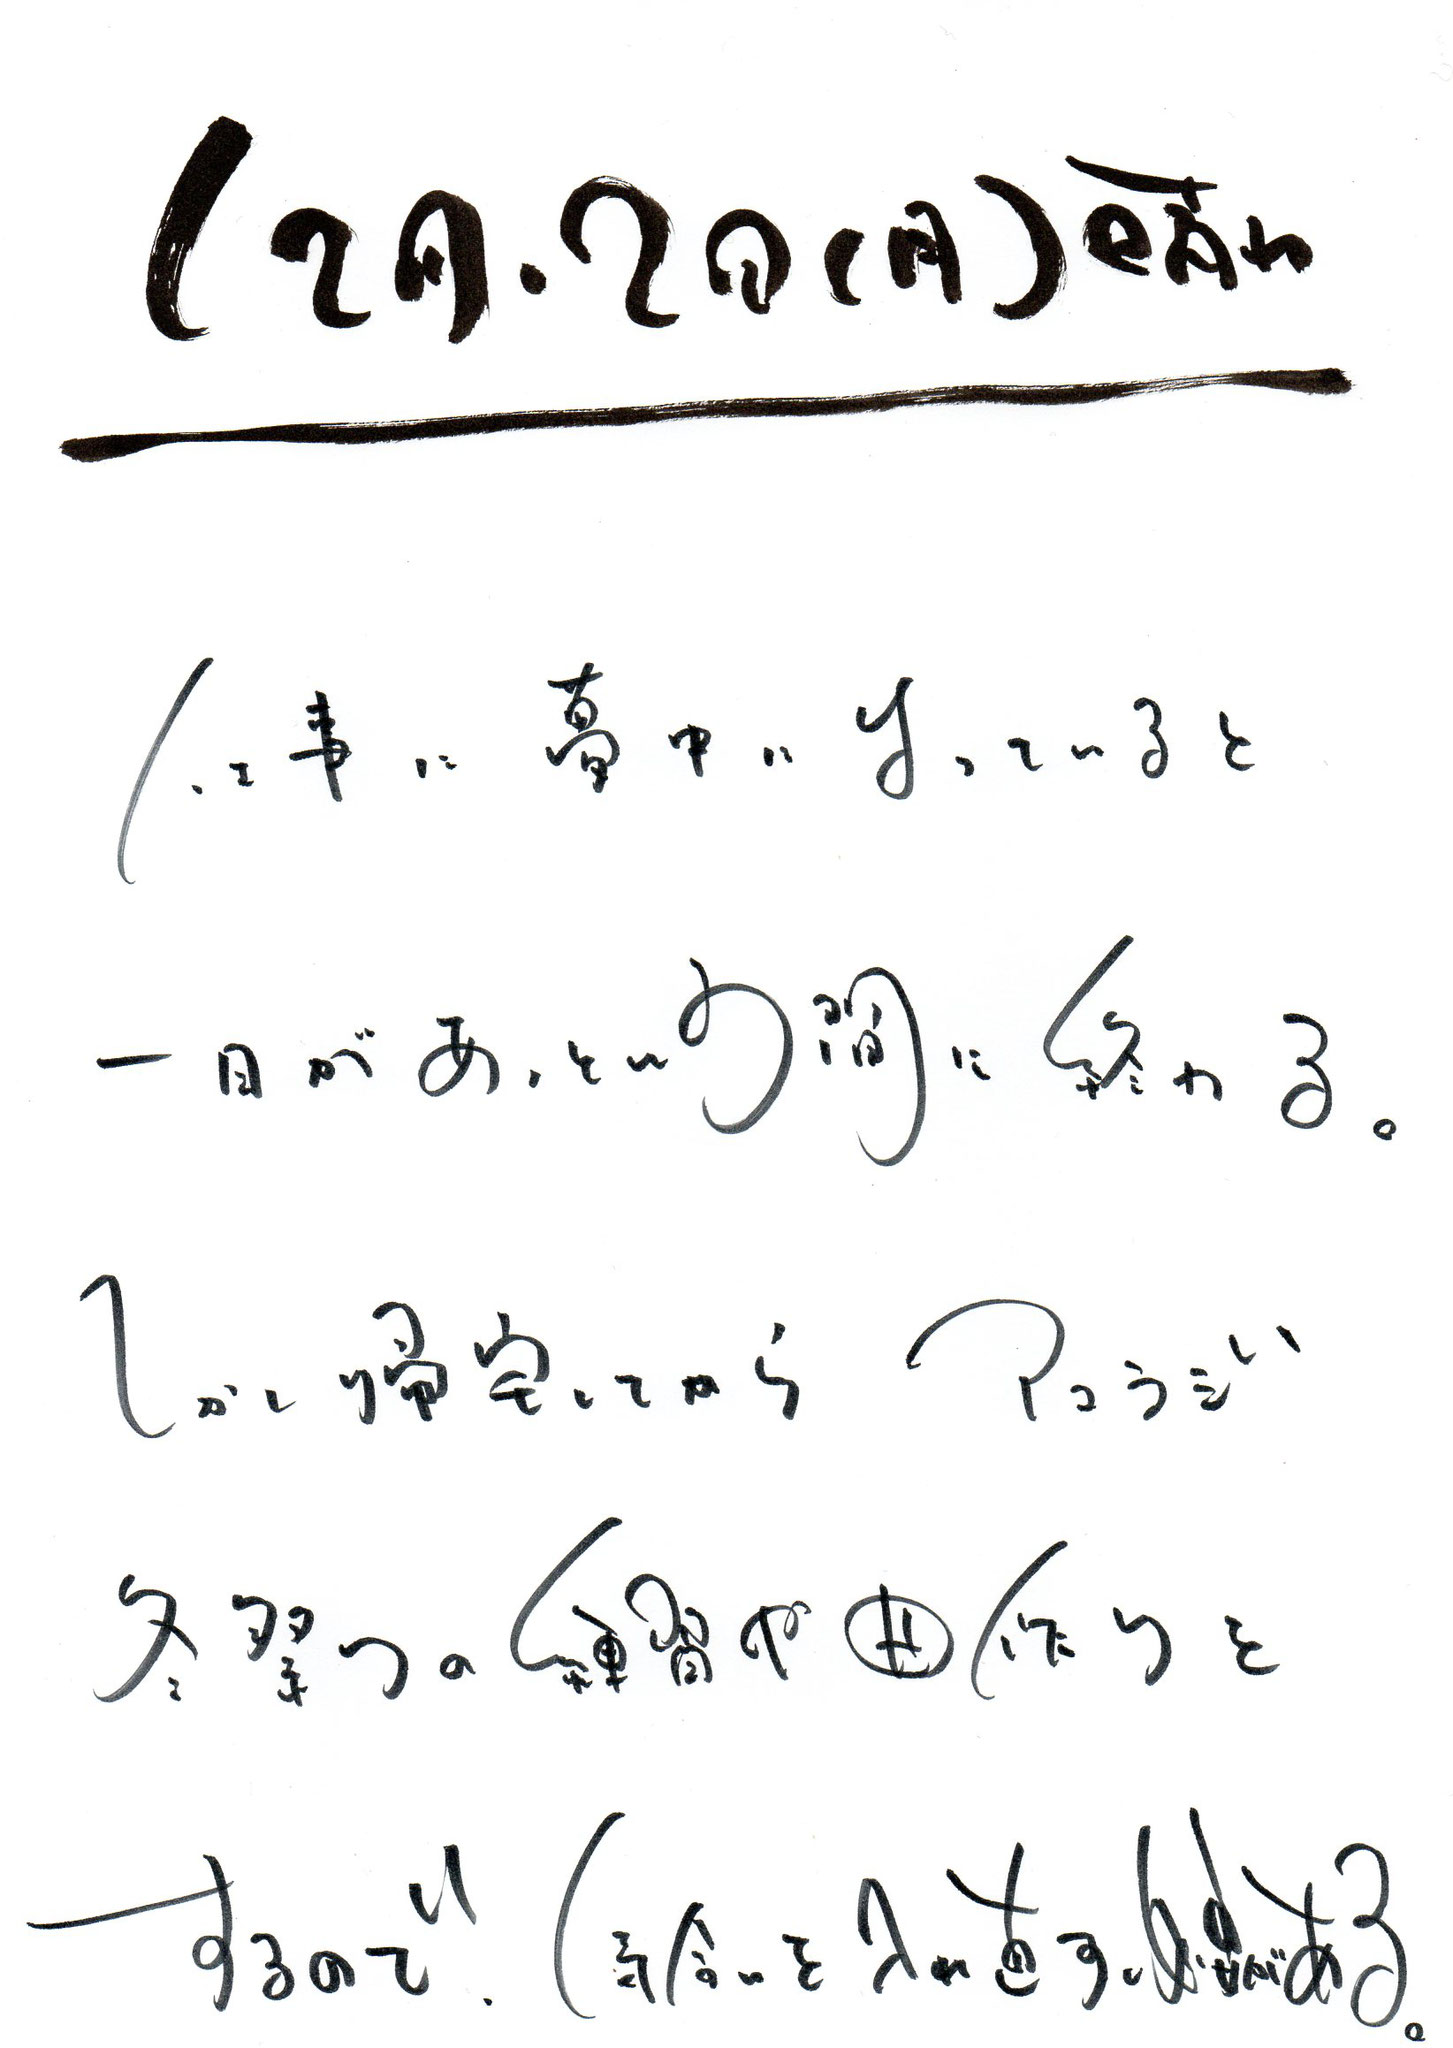 (2月.2日(月)
仕事に夢中になっていると
一日があっという間に終わる。
しかし帰宅してから アコラジ
冬翠の練習や曲作りを
するので、気合いを入れ直す必要がある。